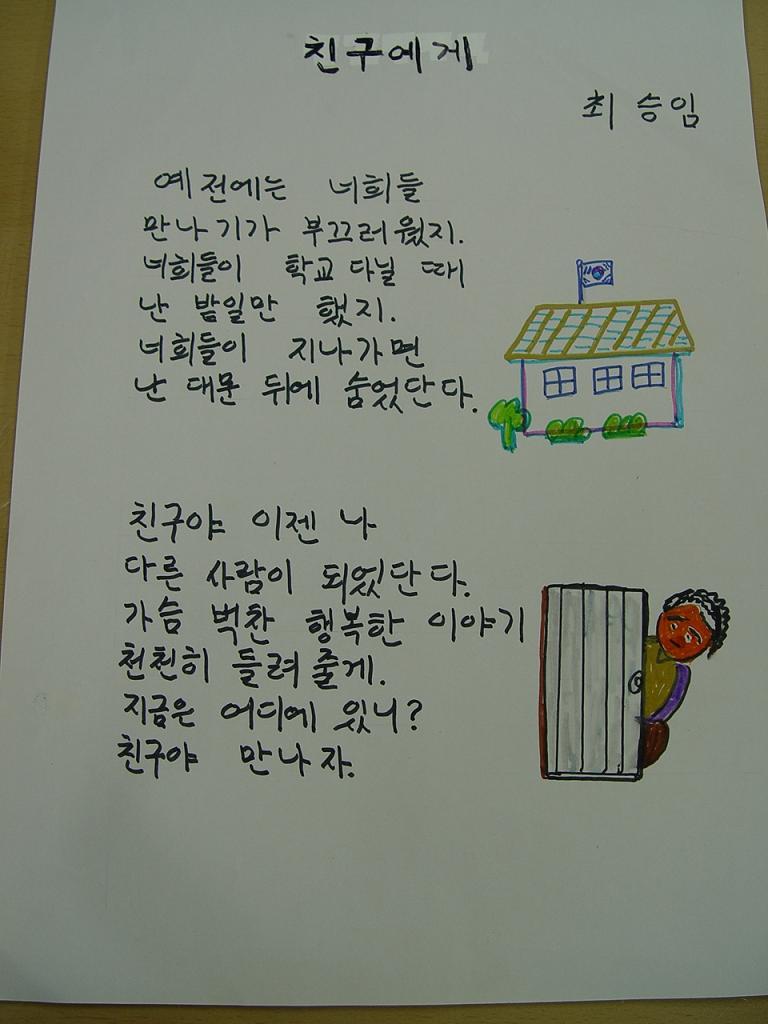 친구에게
최 승임
예전에는 너희들
만나기가 부끄러웠지.
너희들이 학교 다닐 때
난 밭일만 했지.
너희들이 지나가면
난 대문 뒤에 숨었단다.
친구야 이젠 나
다른 사람이 되었단다.
가슴 벅찬 행복한 이야기
천천히 들려 줄게.
지금은 어디에 있니?
친구야 만나자.